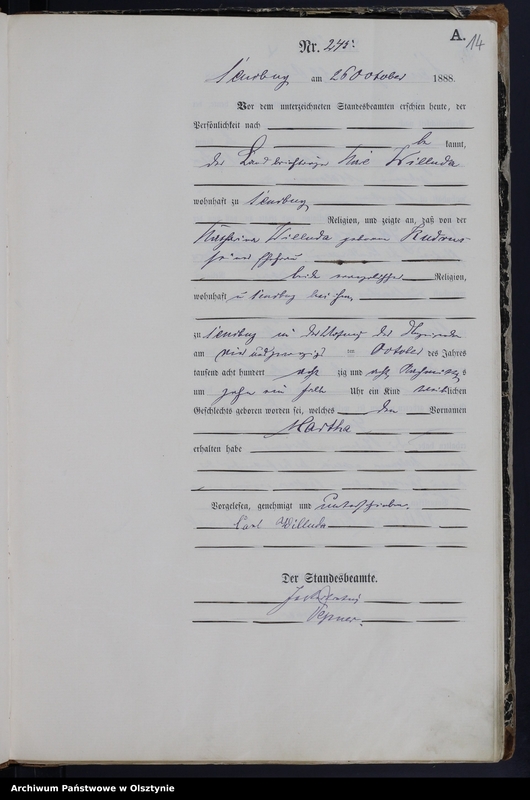 A.
14
Nr. 245.
Sensburg am 26 October 1888.
Vor dem unterzeichneten Standesbeamten erschien heute, der
Persönlichkeit nach
be kannt,
der Landbriefträger Willuda
wohnhaft zu Sensburg
Religion, und zeigte an, daß von der
Willuda geborene
seiner Ehefrau
beide evangelischer Religion,
wohnhaft zu Sensburg bei ihm
zu Sensburg in der Wohnung der
am vier und zwanzigsten October des Jahres
tausend acht hundert acht zig und acht Nachmittags
um zehn ein halb Uhr ein Kind weiblichen
Geschlechts geboren worden sei, welches den Vornamen
Martha
erhalten habe
Vorgelesen, genehmigt und unterschrieben.
Carl Willuda
Der Standesbeamte.
Archiwum Państwowe w Olsztynie